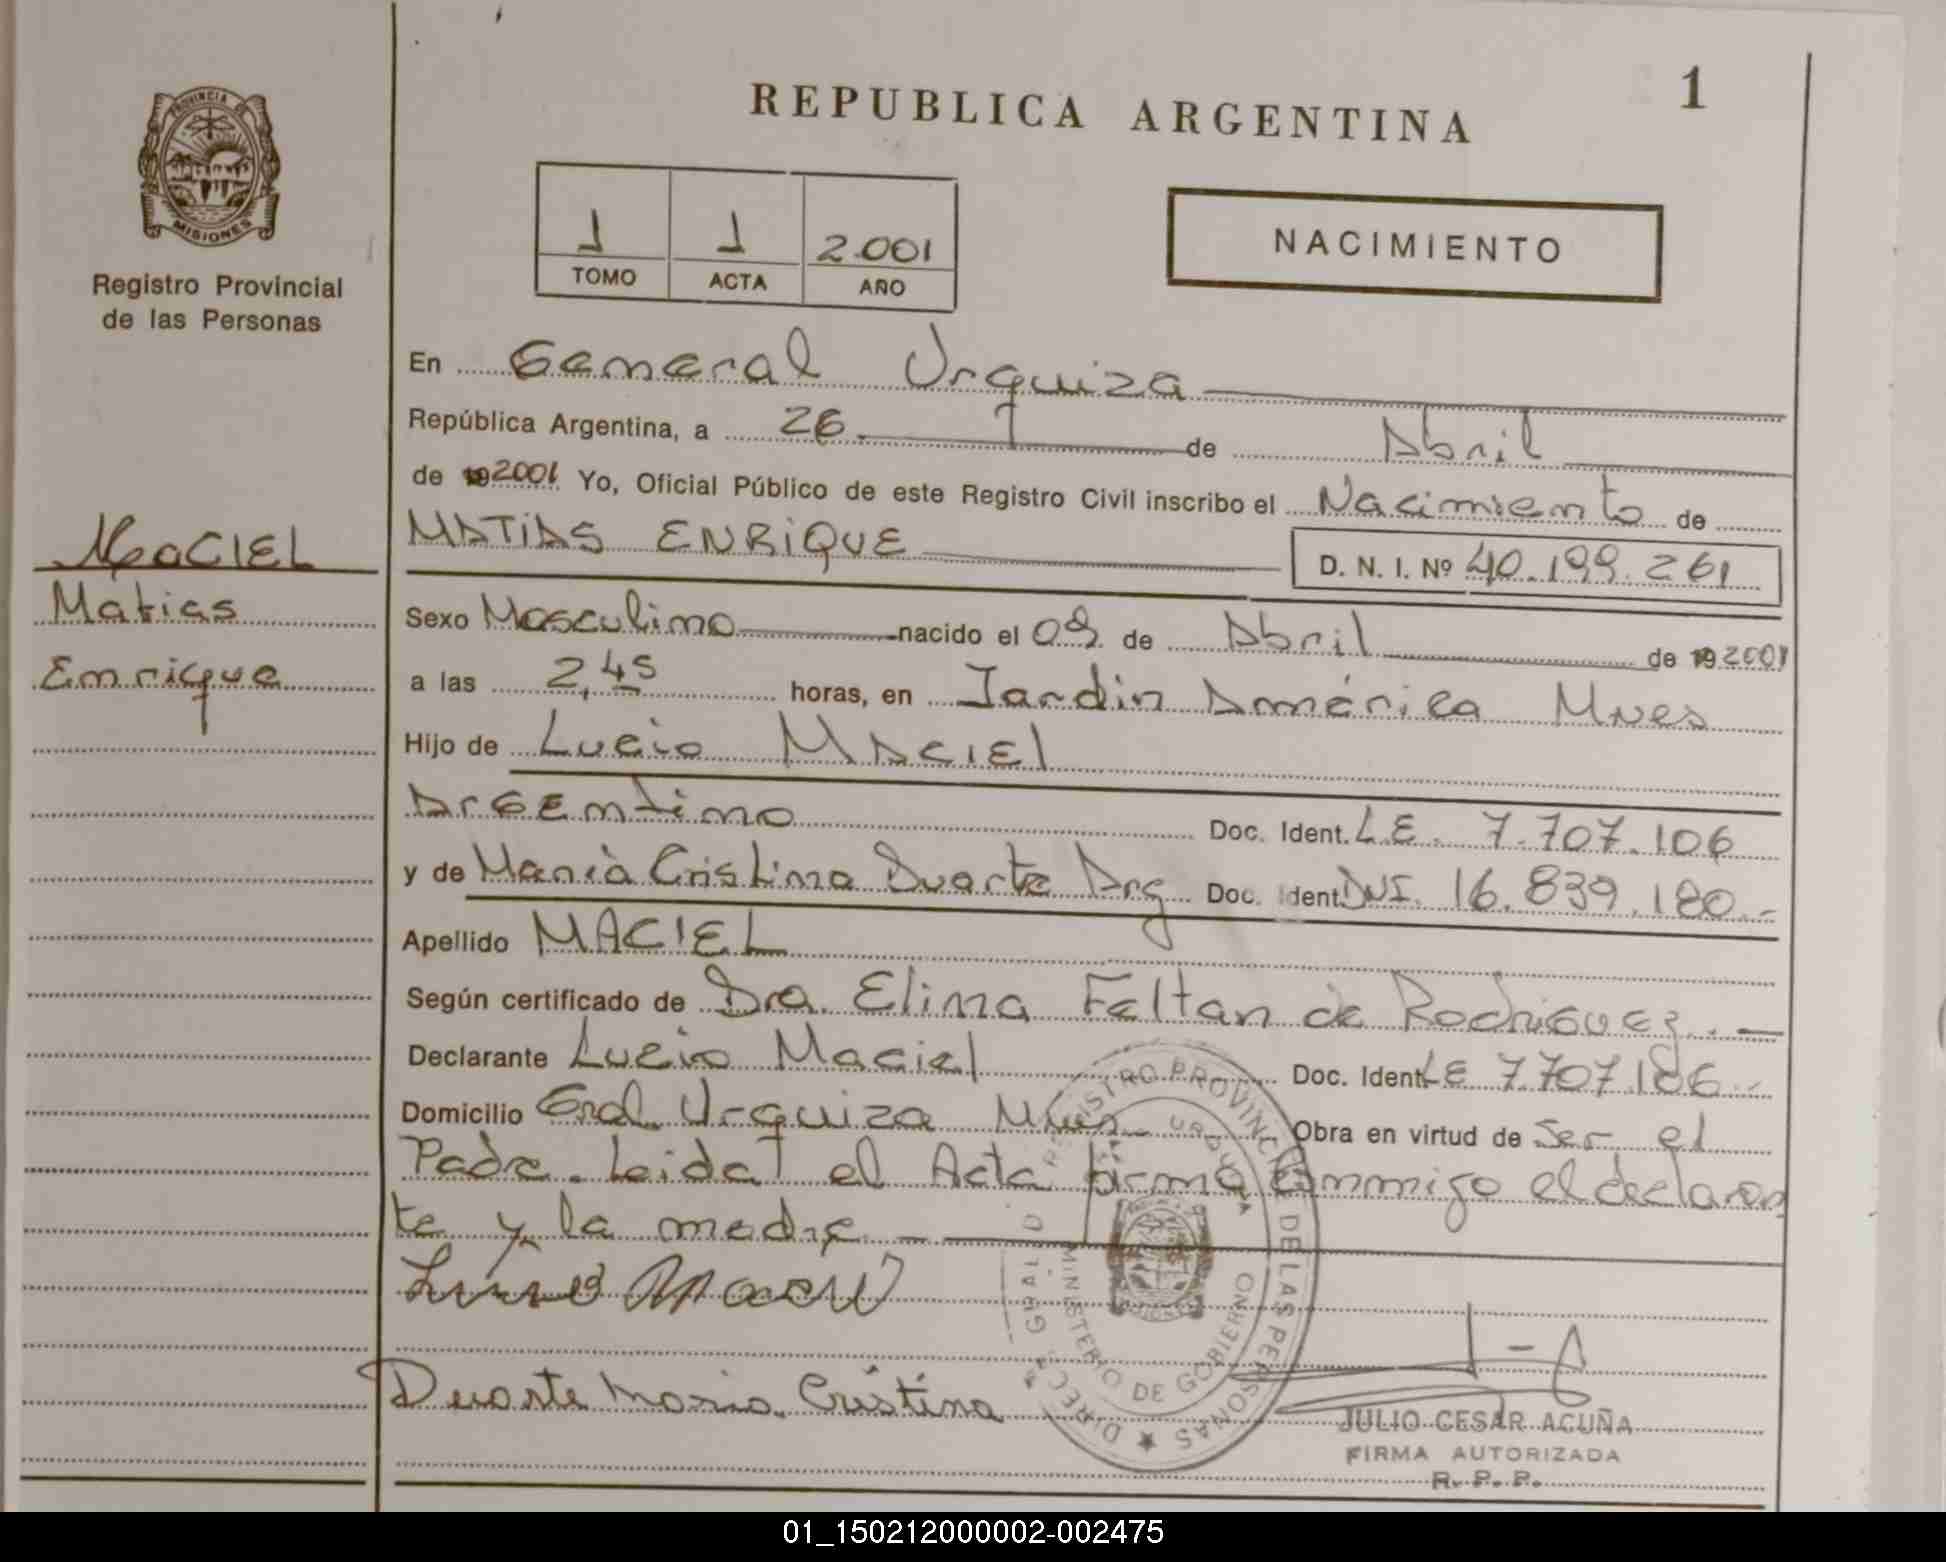 REPUBLICA ARGENTINA
1
PROVINCIA DE
MISIONES
Registro Provincial
de las Personas
1 1 2.001
TOMO ACTA AÑO
NACIMIENTO
MaCIEL
Matias
Enrique
En General Urquiza
República Argentina, a 26 de Abril
de 192001 Yo, Oficial Público de este Registro Civil inscribo el Nacimiento de
MATIAS ENRiQUE
D. N. I. Nº 40.199.261
Sexo Masculino nacido el 09 de Abril de 192001
a las 2,45 horas, en Jardin América Mnes
Hijo de Lucio MACIEL
Argentino Doc. Ident. L.E. 7.707.106
y de Maria Cristina Duarte Arg Doc. Ident DNI. 16.839.180.-
Apellido MACIEL
Según certificado de Dra. Elina Feltan de Rodriguez.-
Declarante Lucio Maciel Doc. Ident LE 7.707.186.-
Domicilio Gral. Urquiza Mnes Obra en virtud de Ser el
Padre. Leida el Acta firma conmigo el declaran
te y la madre
Duarte Maria Cristina
REGISTRO PROVINCIAL DE LAS PERSONAS
DIRECC. GRAL. D
MINISTERIO DE GOBIERNO
JULIO CESAR ACUÑA
FIRMA AUTORIZADA
R. P. P.
01_150212000002-002475